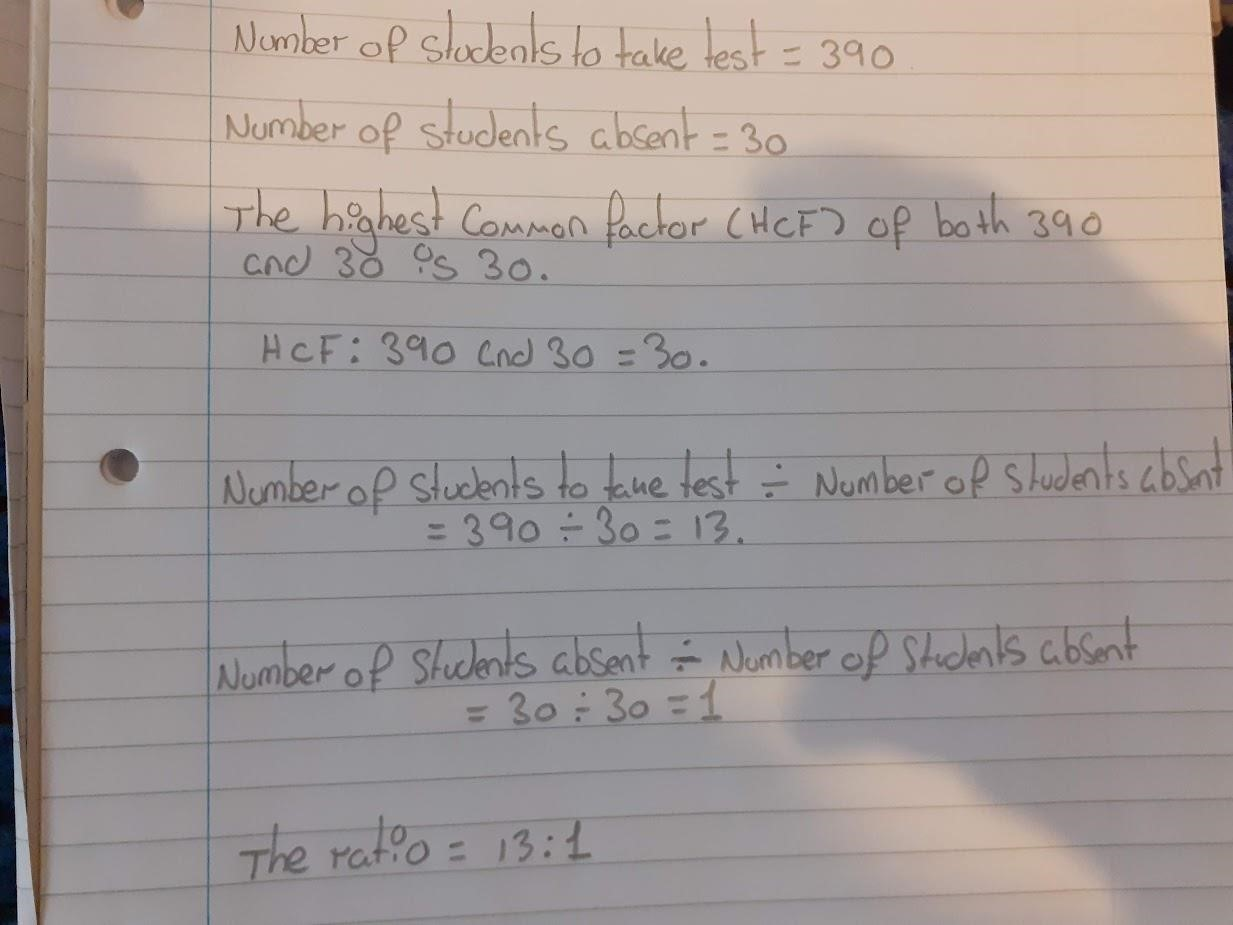 Number of students to take test = 390
Number of students absent = 30
The highest Common factor (HCF) of both 390
and 30 is 30.
HCF: 390 and 30 = 30.
Number of students to take test ÷ Number of students absent
= 390 ÷ 30 = 13.
Number of students absent ÷ Number of students absent
= 30 ÷ 30 = 1
The ratio = 13:1